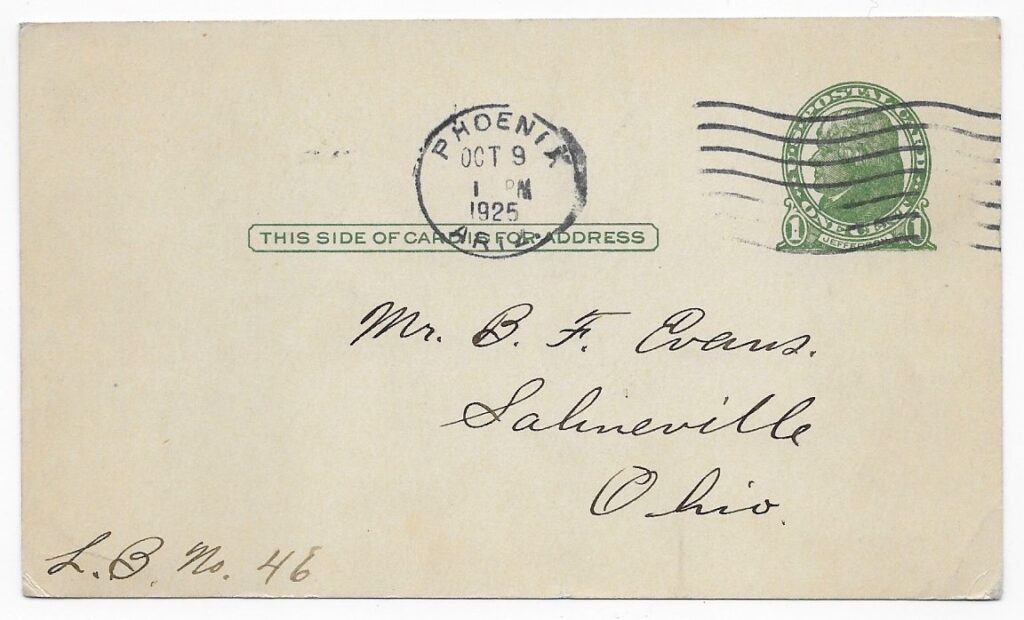 PHOENIX
OCT 9
1 PM
1925
ARIZ.
U.S. POSTAL CARD
ONE CENT
1 JEFFERSON 1
THIS SIDE OF CARD IS FOR ADDRESS
Mr. B. F. Evans.
Salineville
Ohio.
L. B. No. 46